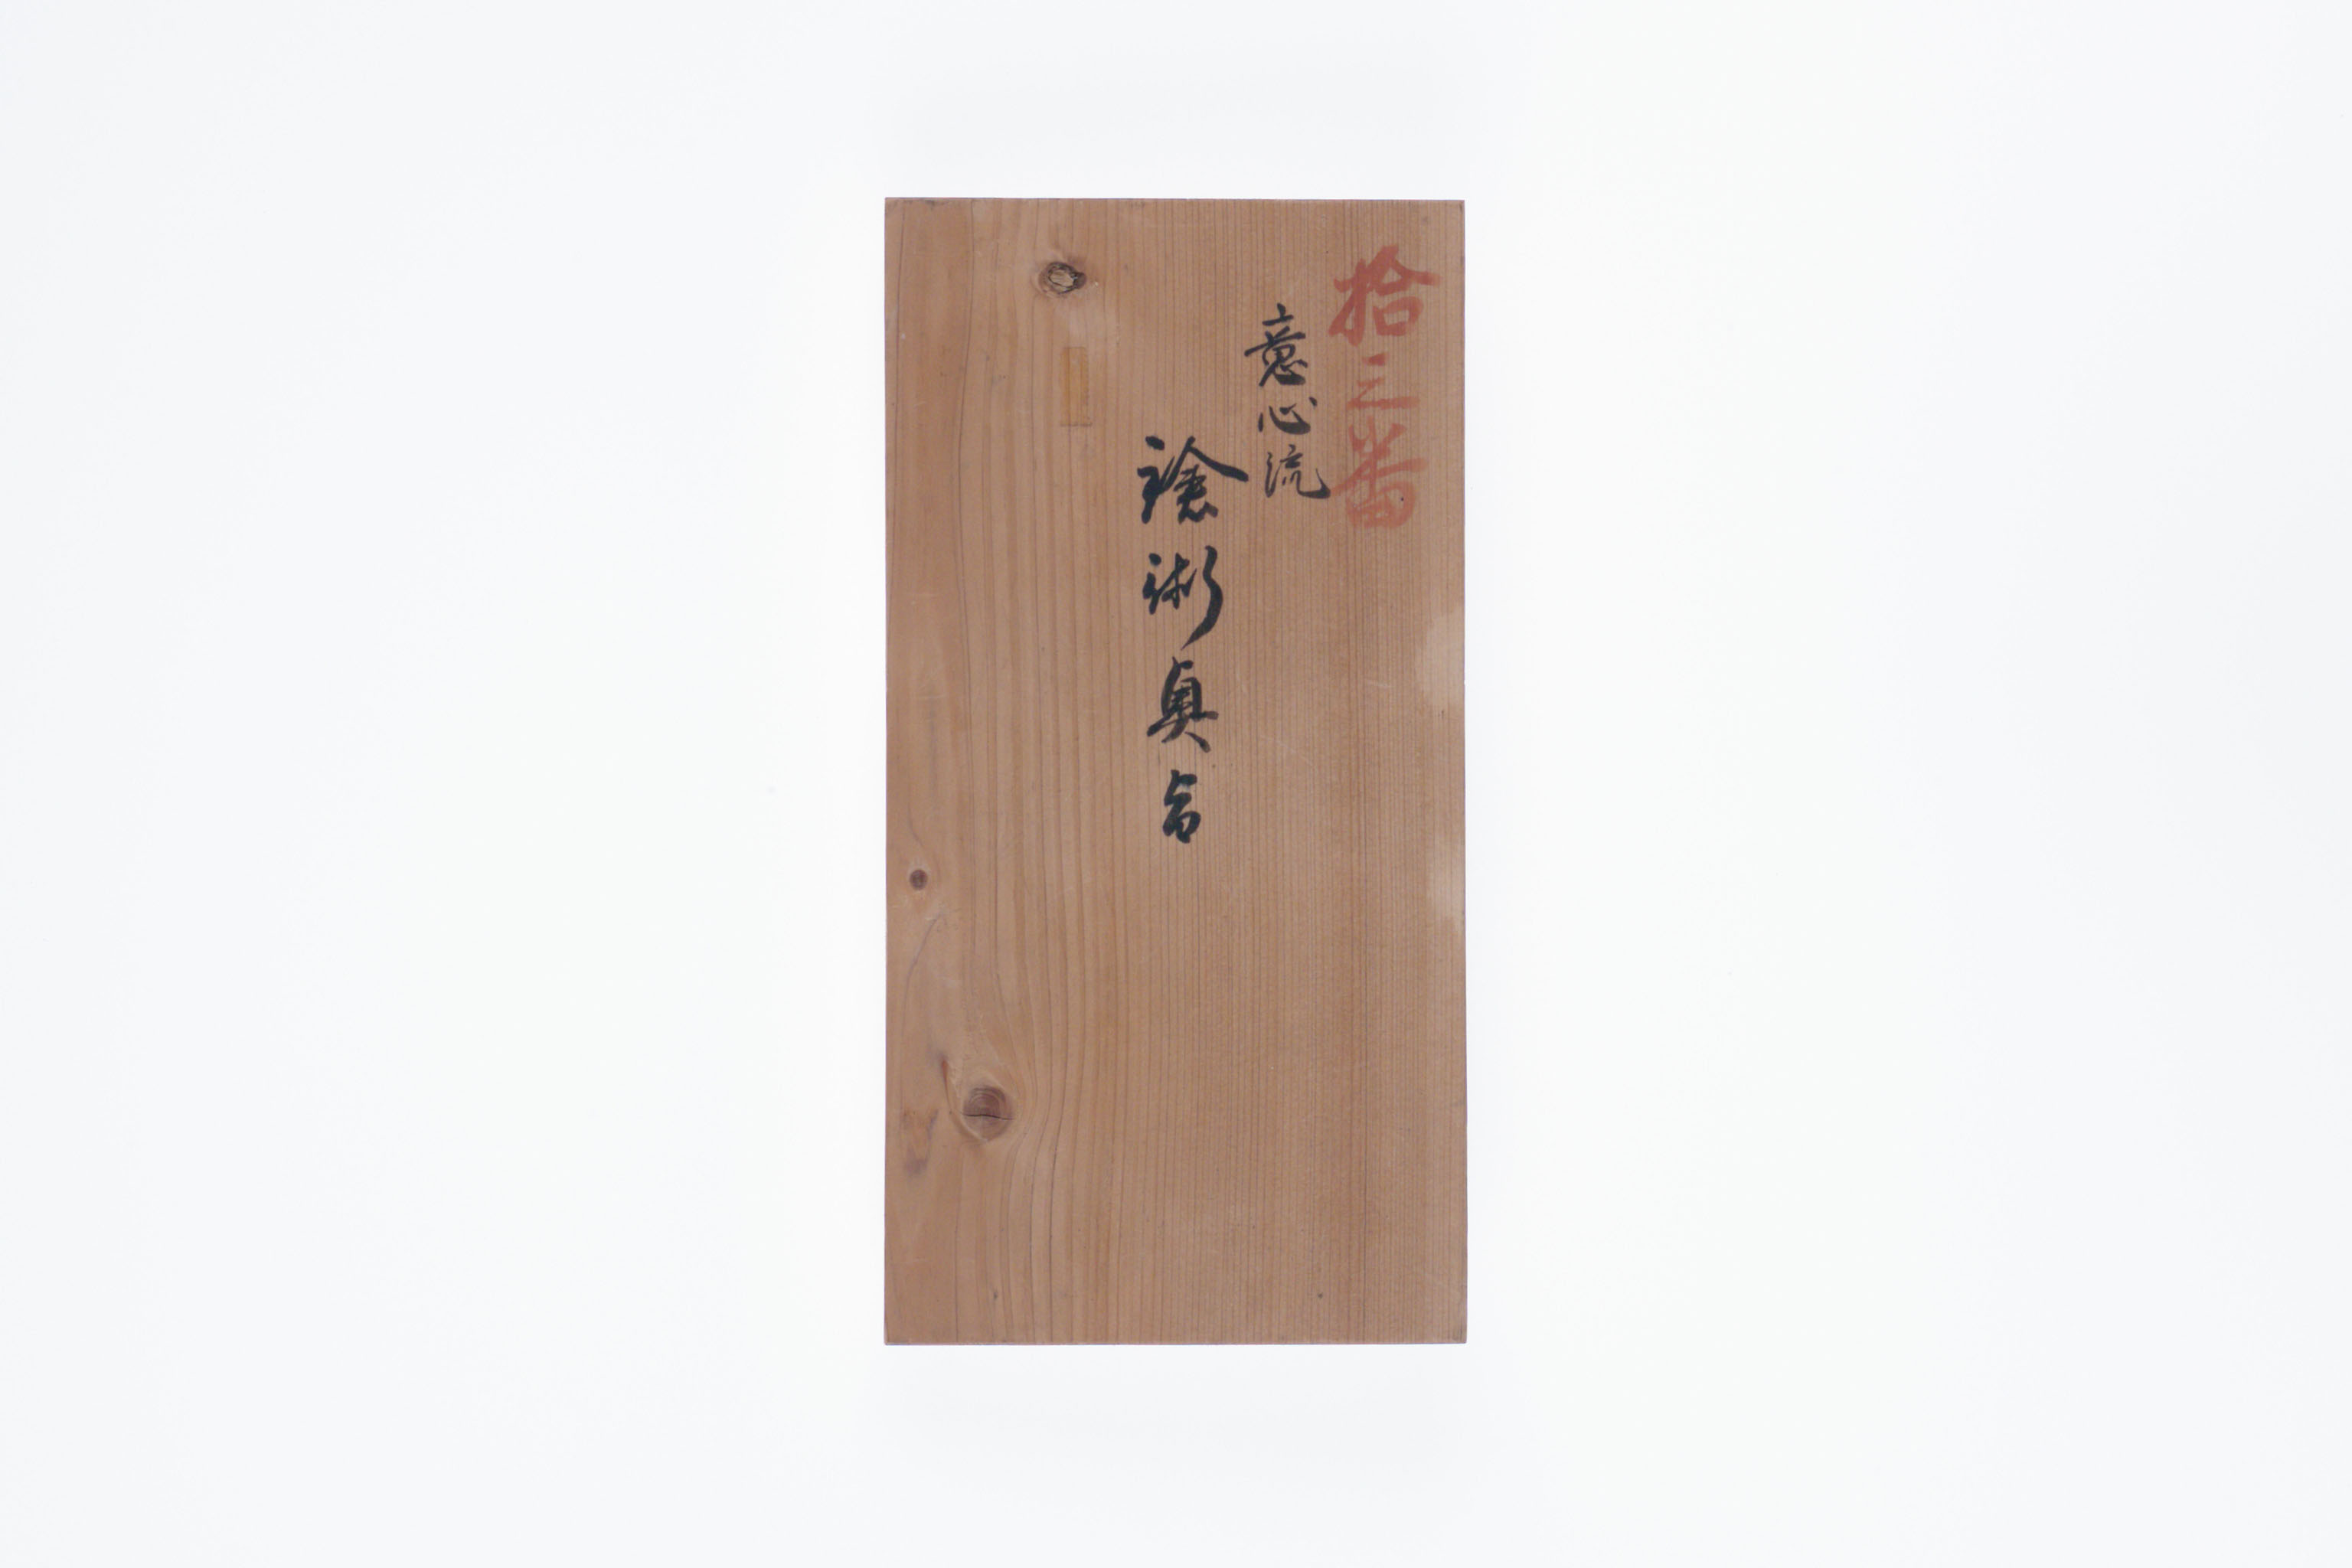 拾三番
意心流
鎗術奥旨